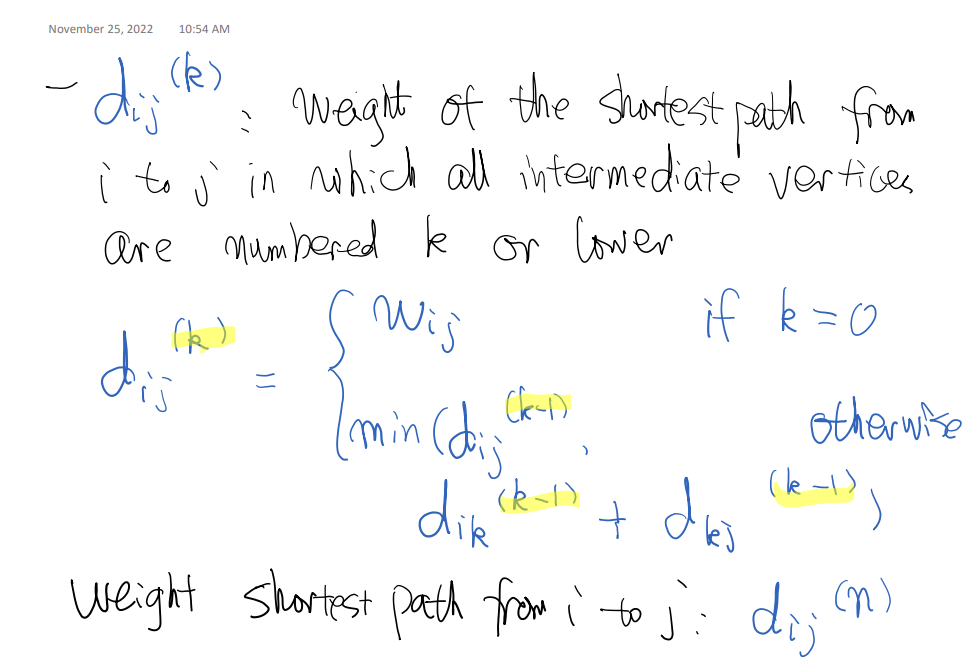 November 25, 2022 10:54 AM
- dij^(k) : Weight of the shortest path from
i to j in which all intermediate vertices
are numbered k or lower
dij^(k) = { wij if k = 0
min(dij^(k-1), otherwise
dik^(k-1) + dkj^(k-1))
Weight shortest path from i to j: dij^(n)